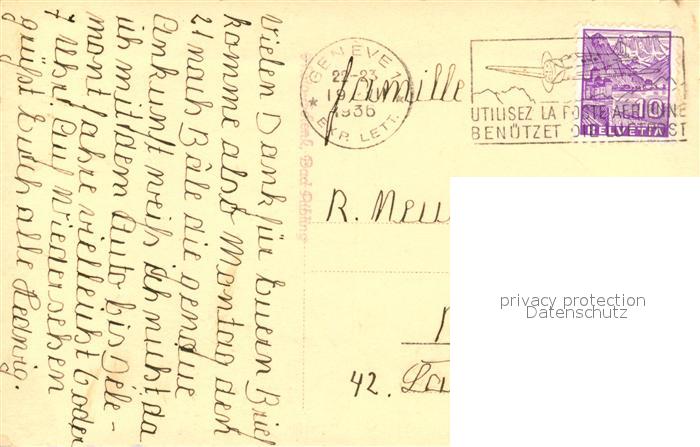 Vielen Dank für Euern Brief
komme also Montag den
21 nach Bâle die genaue
Ankunft weiß ich nicht, da
ich mit dem Auto bis Dele-
mont fahre vielleicht 6 oder
7 Uhr. Auf Wiedersehen
grüßt Euch alle Hedwig.
GENÈVE 1
22-23
1936
EXP. LETT.
UTILISEZ LA POSTE AERIENNE
BENÜTZET
HELVETIA
10
Familie
R. Neu
42.
privacy protection
Datenschutz